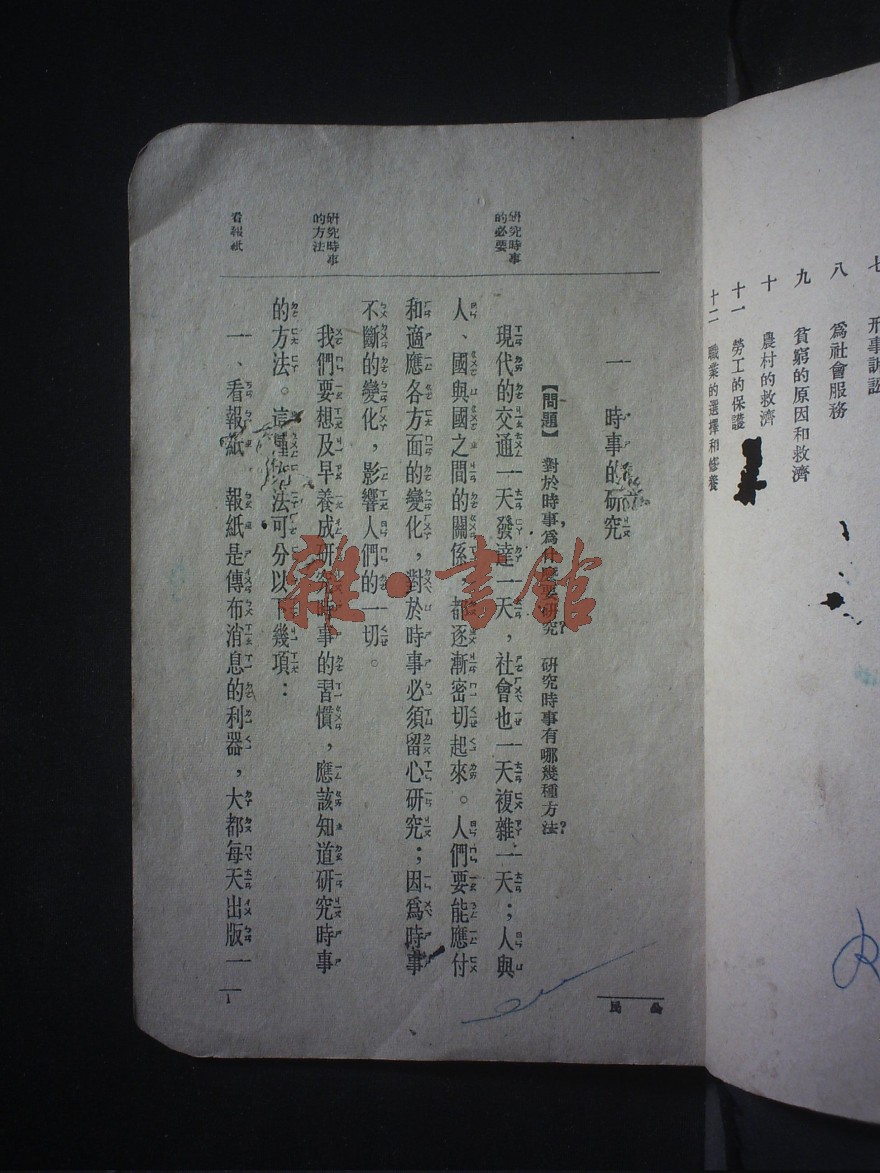 七 刑事訴訟
八 爲社會服務
九 貧窮的原因和救濟
十 農村的救濟
十一 勞工的保護
十二 職業的選擇和修養
公民
一 時事的研究
【問題】 對於時事,爲什麼要研究? 研究時事有哪幾種方法?
研究時事
的必要
現代的交通一天發達一天,社會也一天複雜一天;人與
人、國與國之間的關係,都逐漸密切起來。人們要能應付
和適應各方面的變化,對於時事必須留心研究;因爲時事
不斷的變化,影響人們的一切。
研究時事
的方法
我們要想及早養成研究時事的習慣,應該知道研究時事
的方法。這種方法可分以下幾項:
看報紙
一、看報紙 報紙是傳布消息的利器,大都每天出版一
1
雜·書館